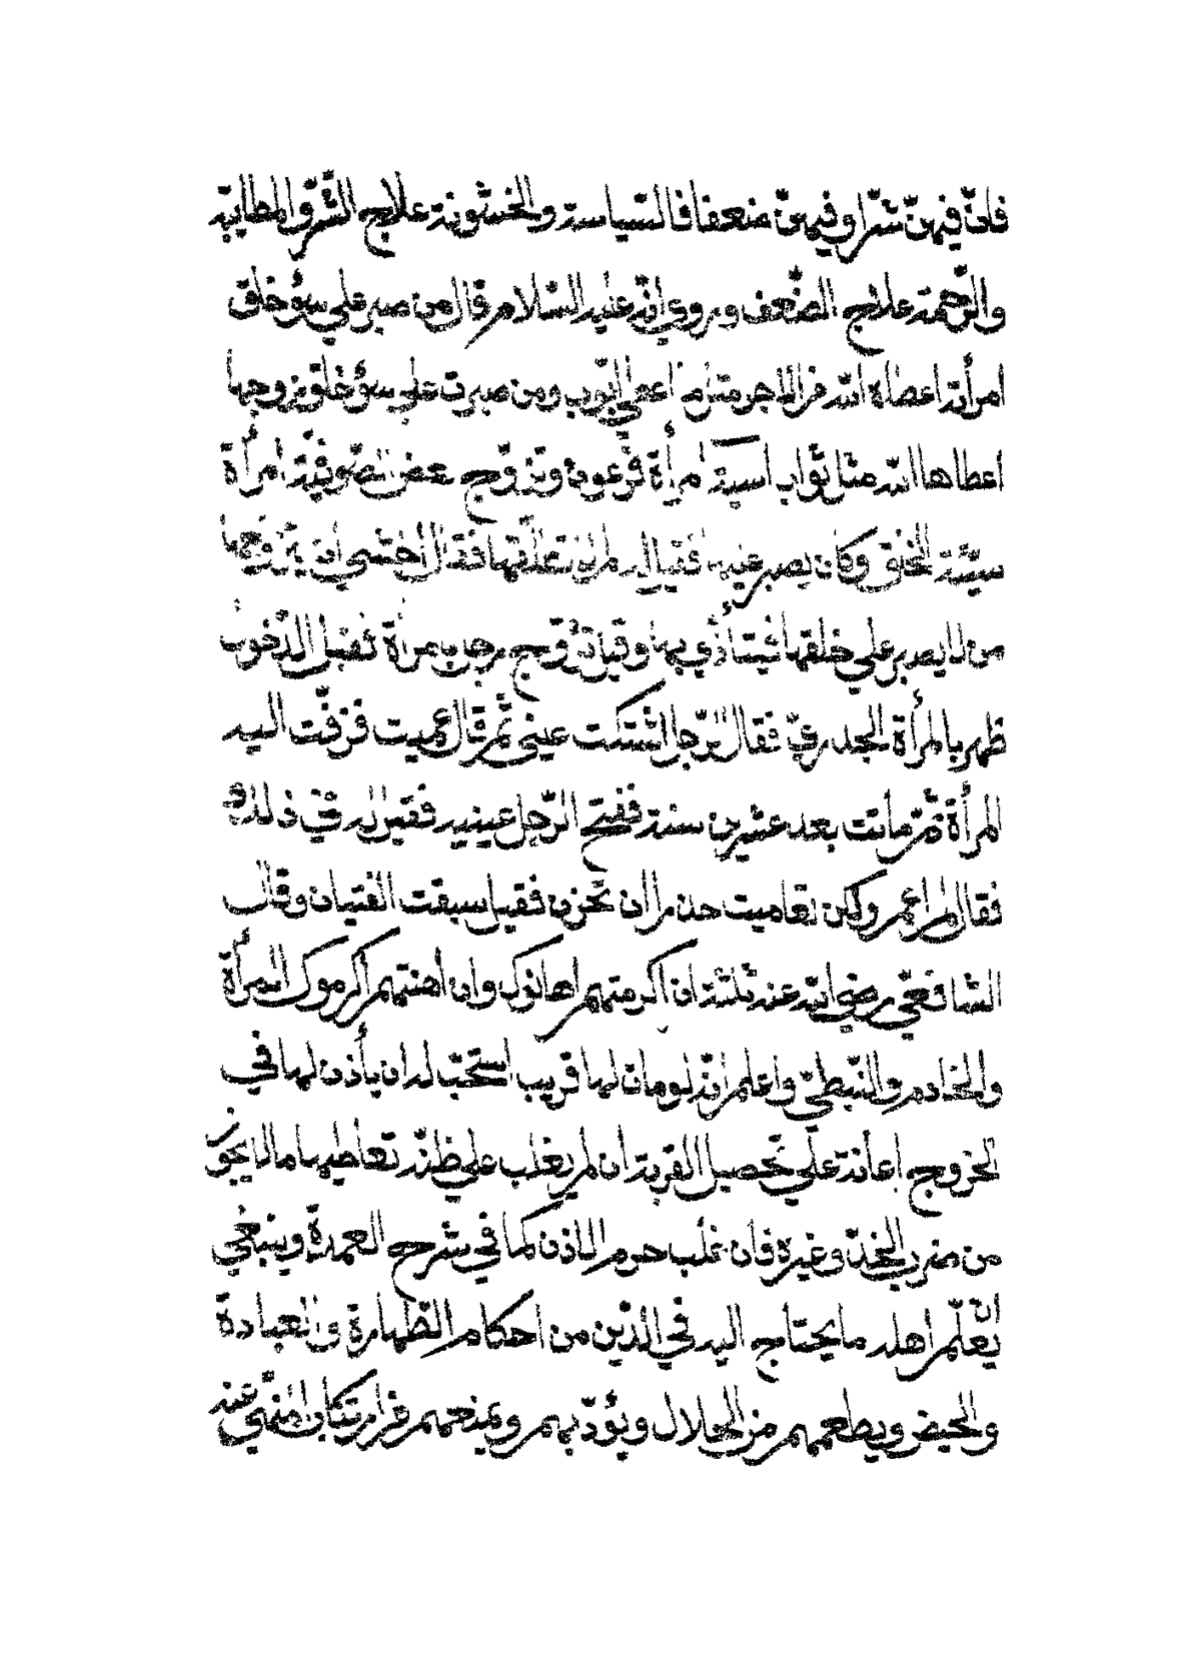 فانّ فيهنّ شرّا وفيهنّ ضعفا فالسّياسة والخشونة علاج الشّرّ والمطايبة
والرّحمة علاج الضّعف وروي انّه عليه السّلام قال من صبر علي سؤ خلق
امرأته اعطاه الله من الاجر مثل ما اعطي ايّوب ومن صبرت علي سؤ خلق زوجها
اعطاها الله مثل ثواب اسية امرأة فرعون وتزوّج بعض الصّوفيّة امرأة
سيّئة الخلق وكان يصبر عليها فقيل له لم لا تطلّقها فقال اخشي ان يتزوّجها
من لا يصبر علي خلقها فيتأذّي بها وقيل تزوّج رجل بامرأة فقبل الدّخول
ظهر بالمرأة الجدريّ فقال الرّجل اشتكت عيني ثمّ قال عميت فزفّت اليه
المرأة ثمّ ماتت بعد عشرين سنة ففتح الرّجل عينيه فقيل له في ذلك
فقال لم اعم ولكن تعاميت حذرا ان تحزن فقيل سبقت الفتيان وقال
الشافعيّ رضي الله عنه ثلثة ان اكرمتهم اهانوك وان أهنتهم أكرموك المرأة
والخادم والنّبطيّ واعلم انّه لو مات لها قريب استحبّ له ان يأذن لها في
الخروج إعانة علي تحصيل القربة ان لم يغلب علي ظنّه تعاطيها ما لا يجوز
من ضرب الخدّ وغيره فان غلب حرم الاذن كما في شرح العمدة وينبغي
ان يعلّم اهله ما يحتاج اليه في الدّين من احكام الطّهارة والعبادة
والحيض ويطعمهم من الحلال ويؤدّبهم ويمنعهم من ارتكاب المنهيّ عنه